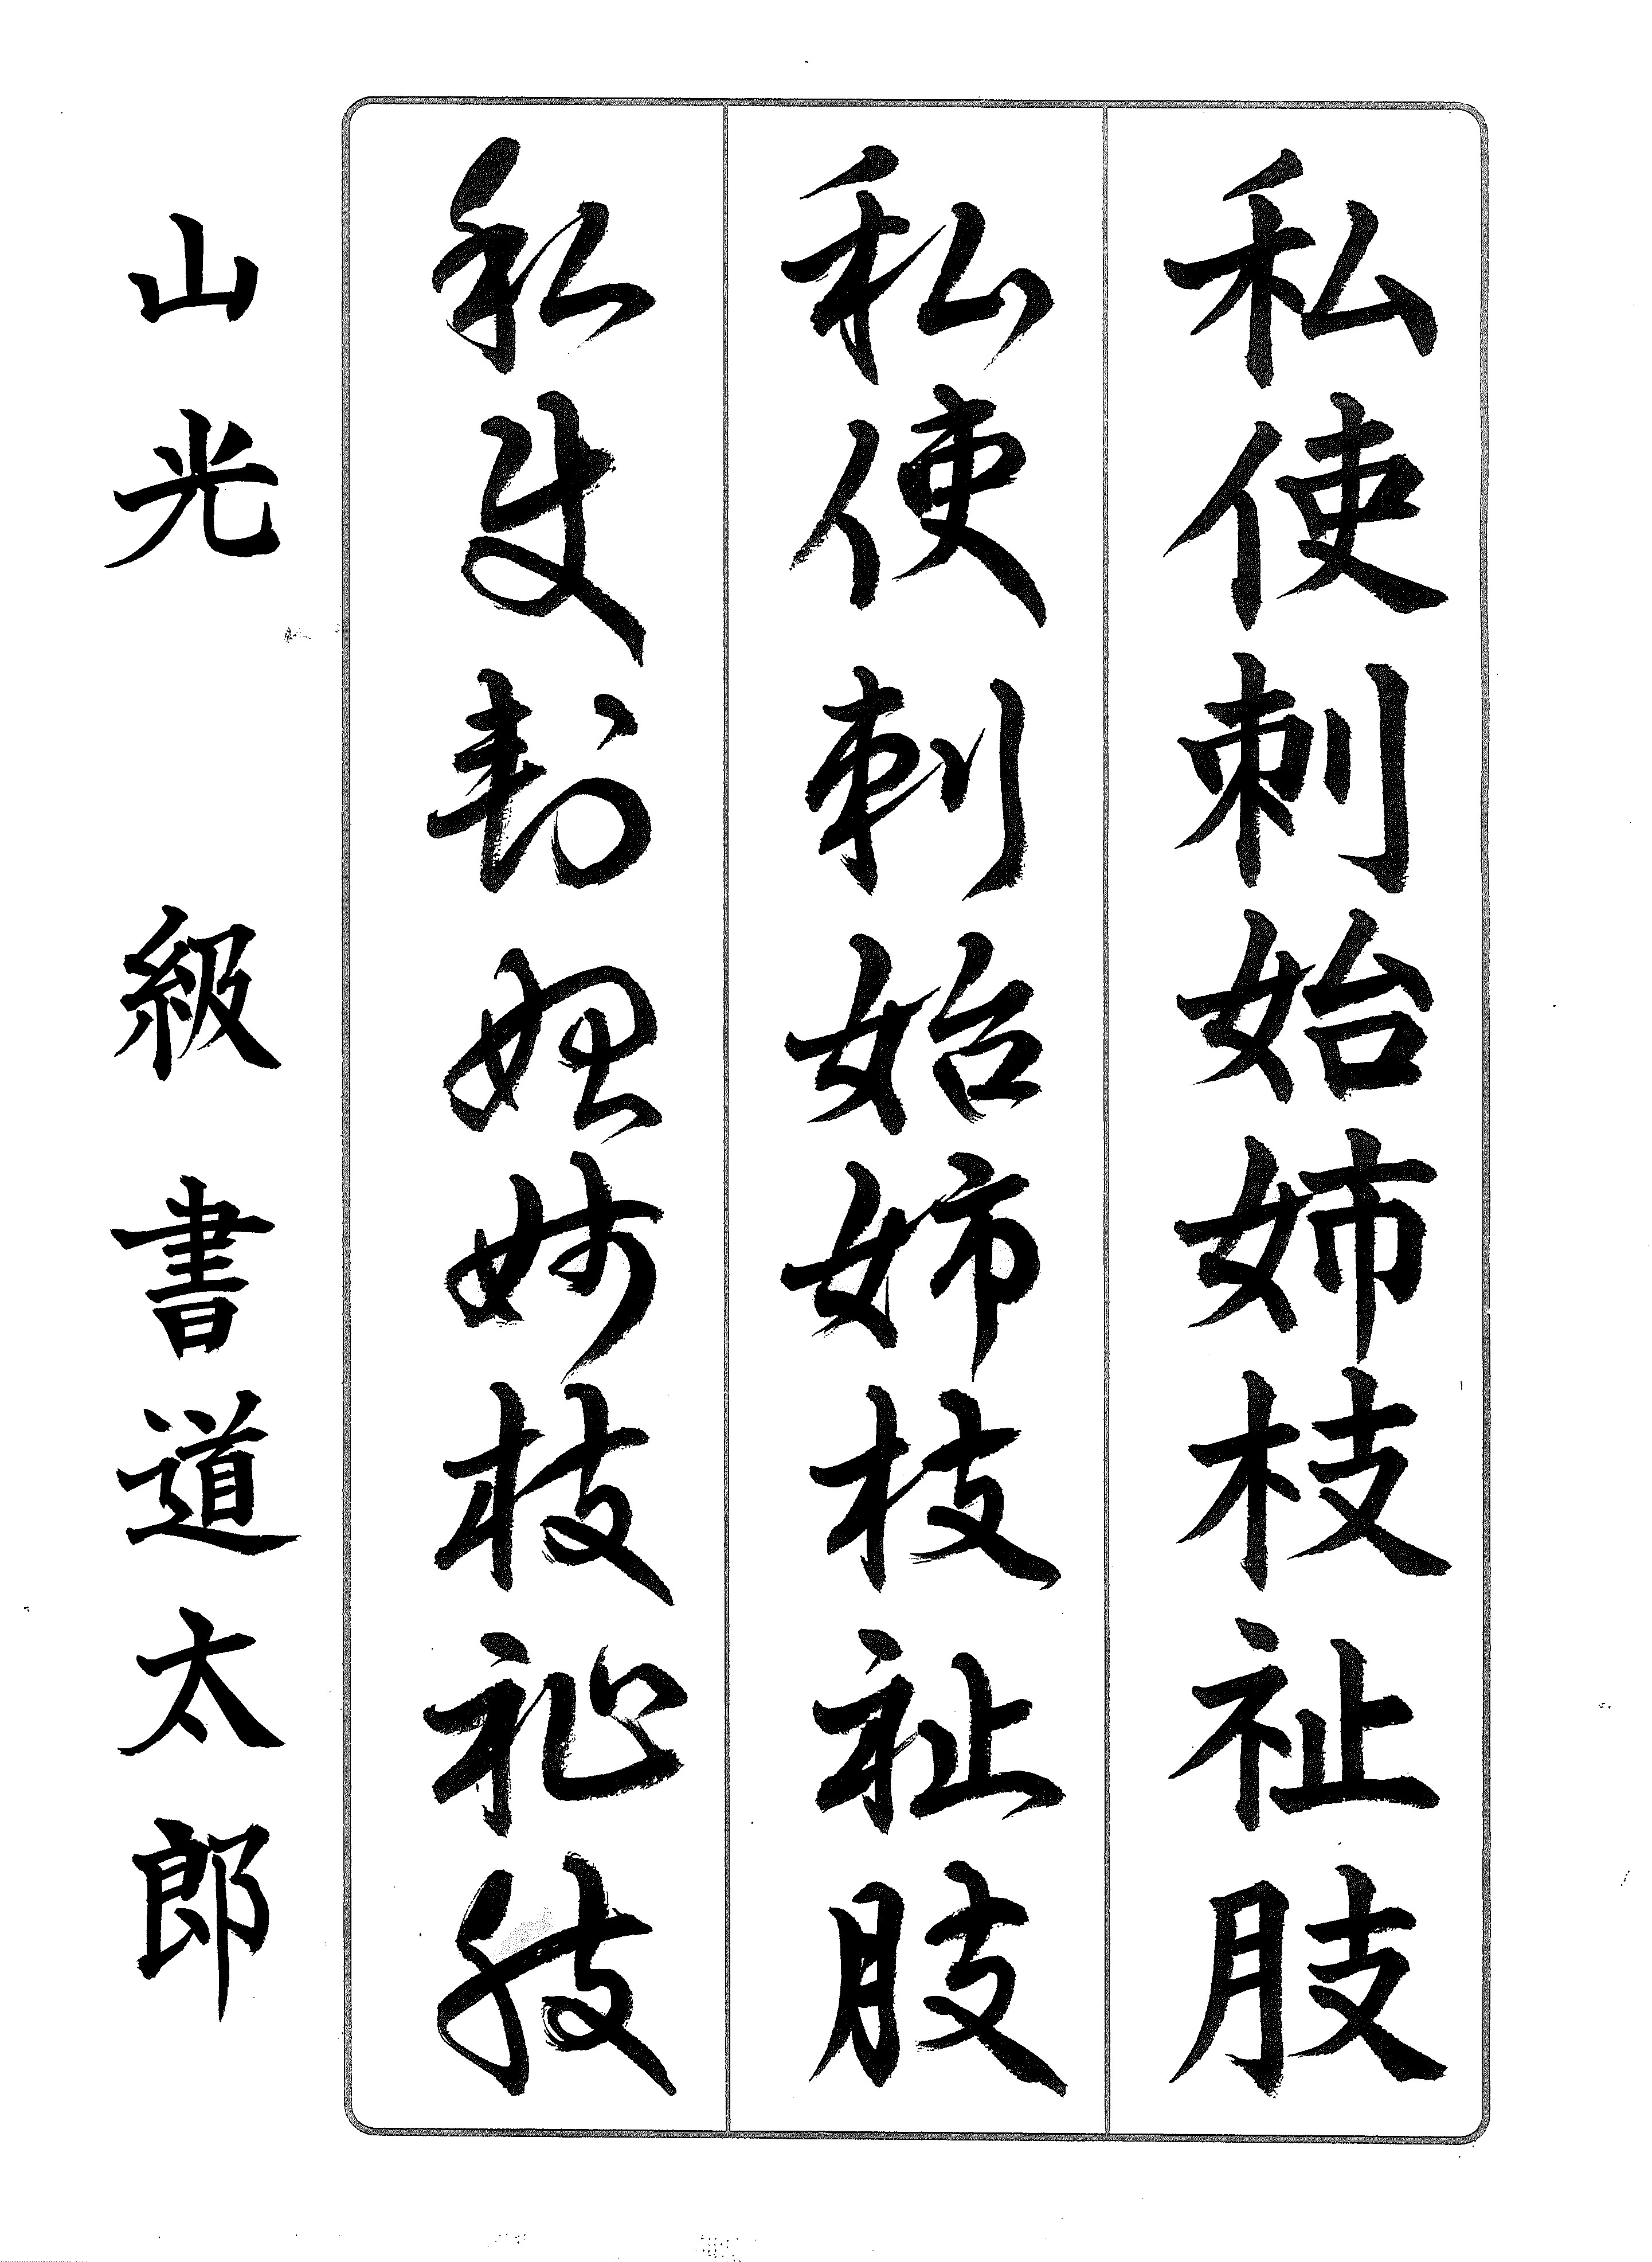 私使刺始姉枝祉肢
私使刺始姉枝祉肢
私使刺始姉枝祉肢
山光 級 書道太郎